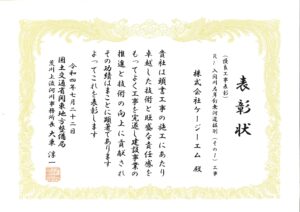 表彰状
(優良工事表彰)
R1入間川右岸池辺河道掘削(その1)工事
株式会社ケージーエム 殿
貴社は頭書工事の施工にあたり
卓越した技術と旺盛な責任感を
もってよく工事を完遂し建設事業の
推進と技術の向上に貢献され
その功績はまことに顕著であります
よってこれを表彰します
令和四年七月二十二日
国土交通省関東地方整備局
荒川上流河川事務所長 大東 淳一